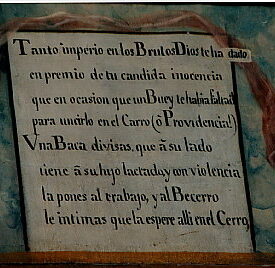 Tanto imperio en los Brutos Dios te ha dado
en premio de tu candida inocencia
que en ocasion que un Buey te habia faltado
para uncirlo en el Carro (ô Providencia!)
Vna Baca divisas, que â su lado
tiene â su hijo lactado, y con violencia
la pones al trabajo, y al Becerro
le intimas que la espere alli en el Cerro,